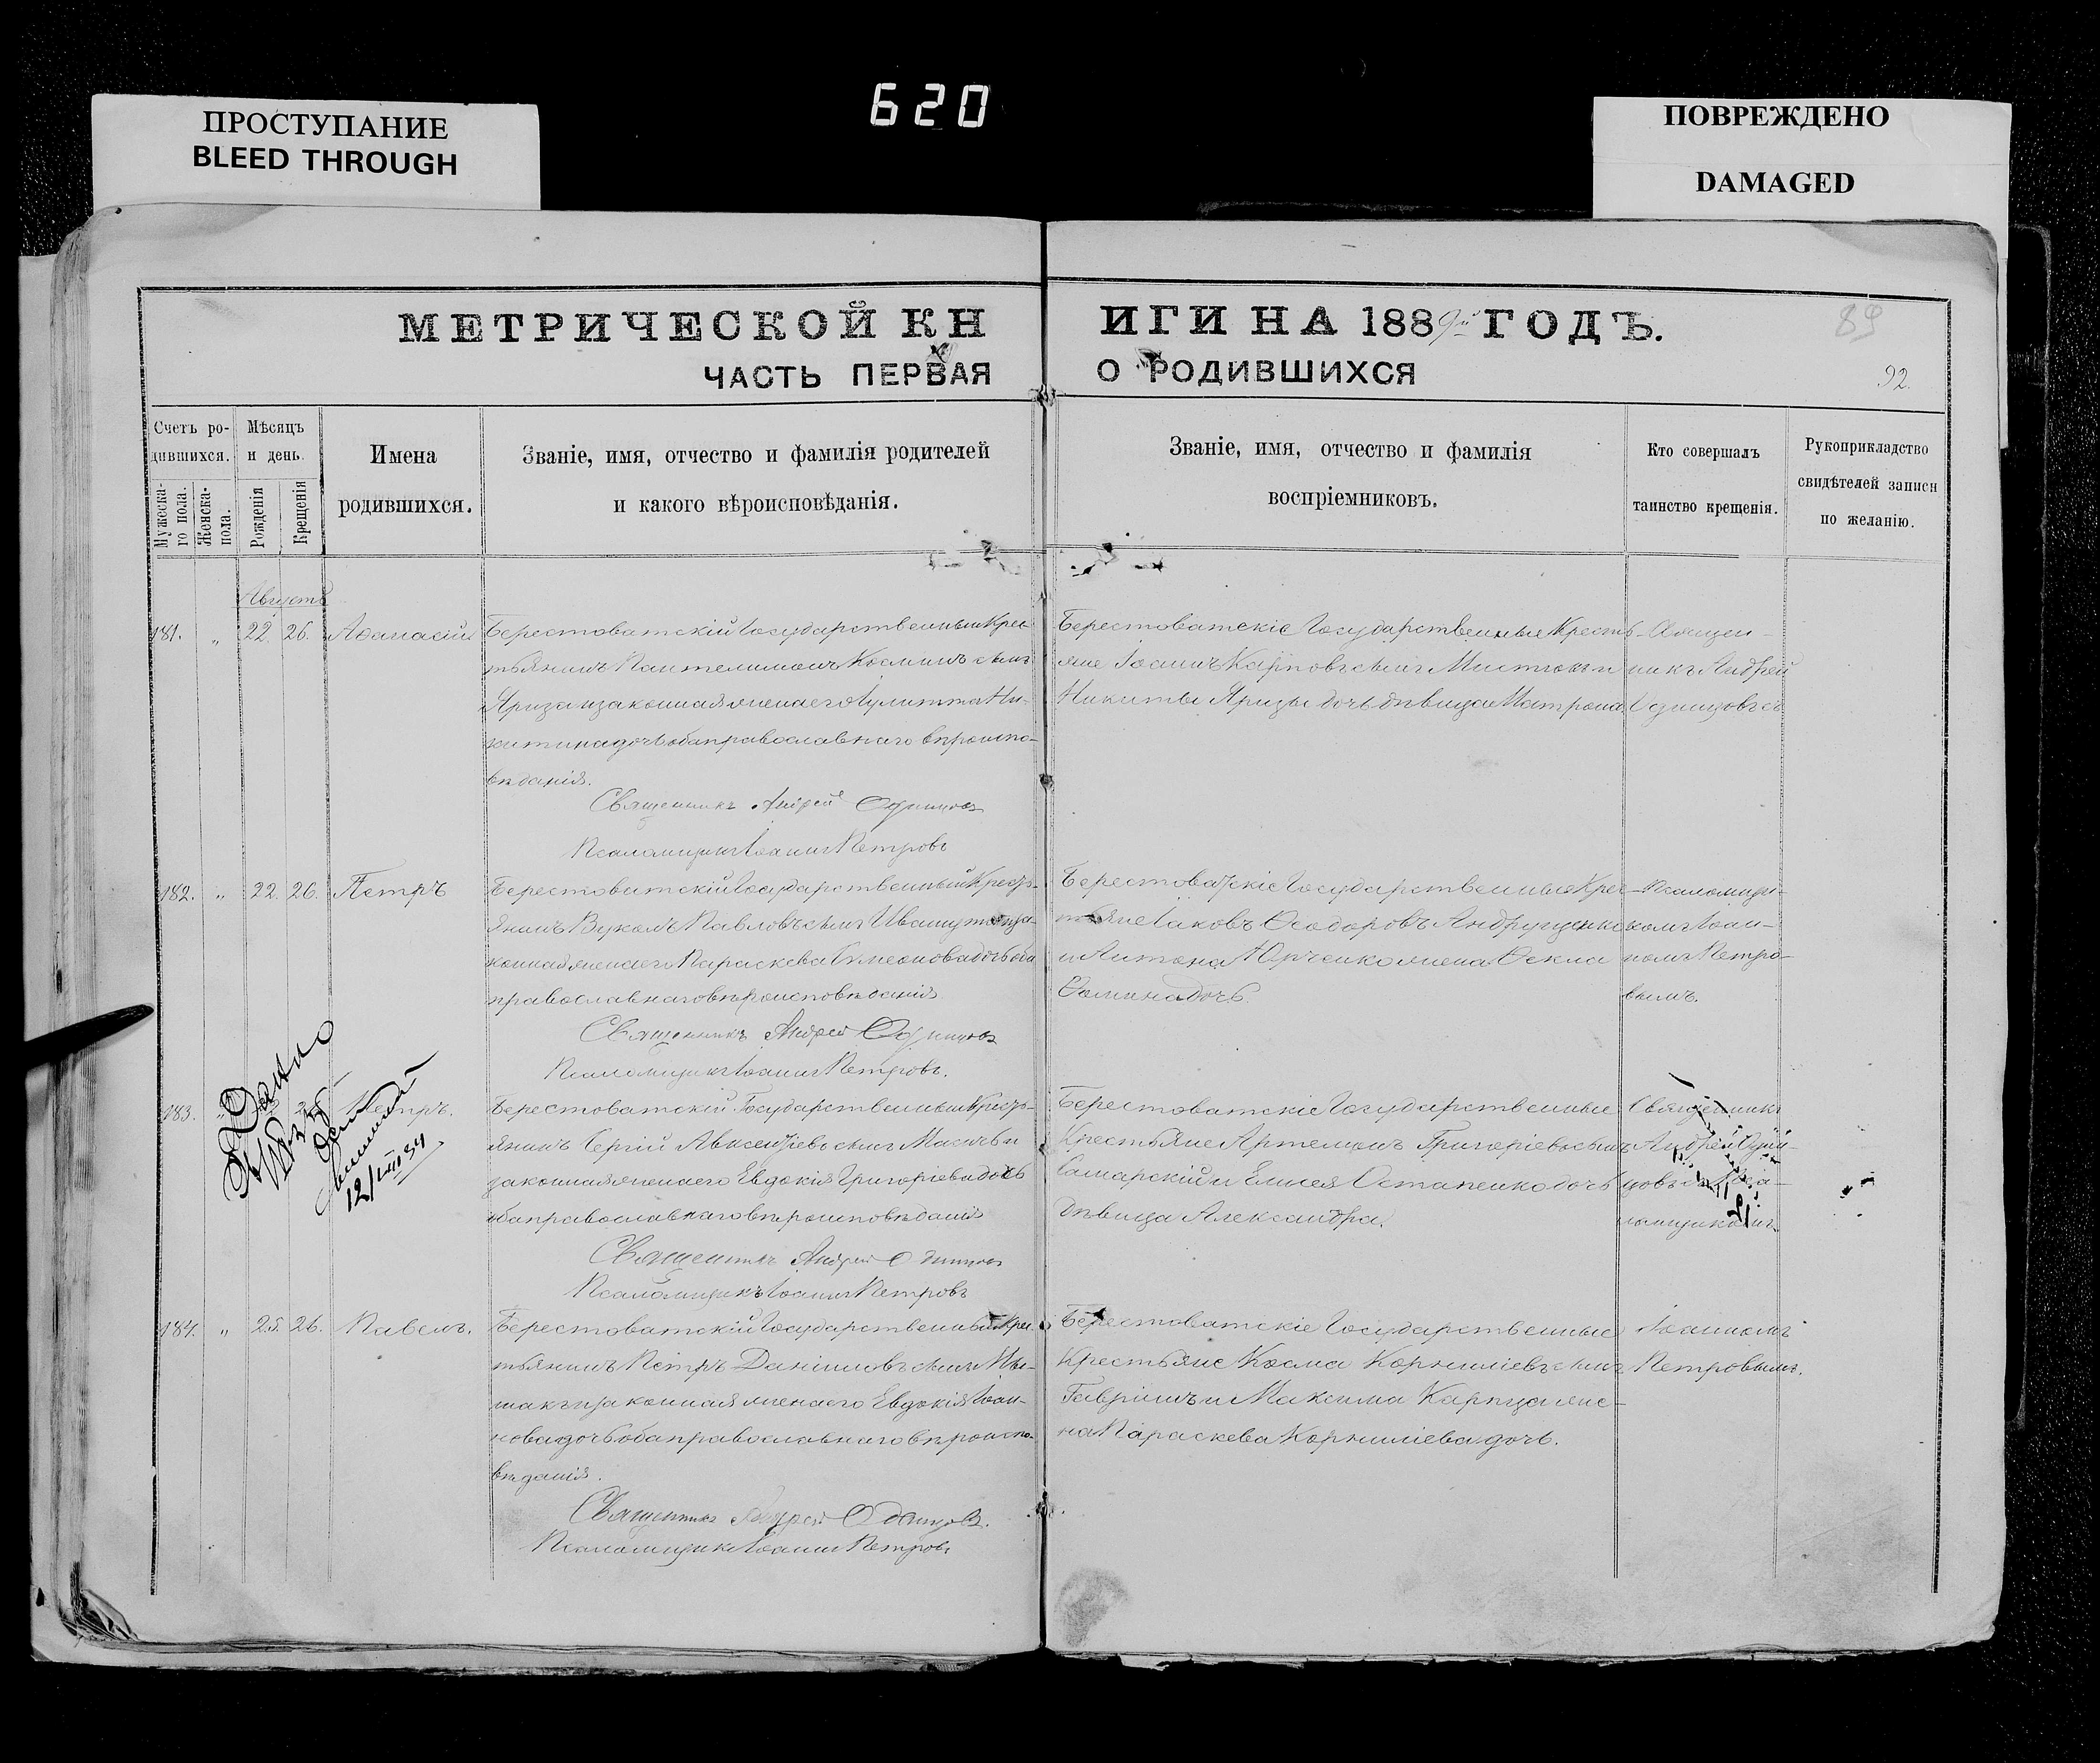 620
ПРОСТУПАНИЕ
BLEED THROUGH
ПОВРЕЖДЕНО
DAMAGED
МЕТРИЧЕСКОЙ КН
ИГИ НА 1889й ГОДЪ.
89
ЧАСТЬ ПЕРВАЯ
О РОДИВШИХСЯ
92.
Счетъ ро-
дившихся.
Мужеска-
го пола.
Женска-
пола.
Мѣсяцъ
и день.
Рожденія
Крещенія
Имена
родившихся.
Званіе, имя, отчество и фамилія родителей
и какого вѣроисповѣданія.
Званіе, имя, отчество и фамилія
воспріемниковъ.
Кто совершалъ
таинство крещенія.
Рукоприкладство
свидѣтелей записи
по желанію.
Августъ
181. „ 22. 26. Аѳанасій
Берестоватскій Государственный Крес-
тьянинъ Пантелимонъ Косминъ сынъ
Яриза и законная жена его Іулитта Ни-
китина дочь оба православнаго вѣроиспо-
вѣданія.
Священникъ Андрей Одинцовъ
Псаломщикъ Іоаннъ Петровъ
Берестоватскіе Государственные Кресть-
яне Іоаннъ Карповъ сынъ и
Никиты Яризы дочь дѣвица Матрона.
Священ-
никъ Андрей
Одинцовъ съ
182. „ 22. 26. Петръ
Берестоватскій Государственный Кресть-
янинъ Вуколъ Павловъ сынъ и за-
конная жена его Параскева Симеонова дочь оба
православнаго вѣроисповѣданія
Священникъ Андрей Одинцовъ
Псаломщикъ Іоаннъ Петровъ.
Берестоватскіе Государственные Крес-
тьяне Іаковъ Ѳеодоровъ Андрущенко
и Антона Юрченко жена Ѳекла
Ѳомина дочь.
Псаломщи-
комъ Іоан-
номъ Петро-
вымъ.
183. Петръ.
Дано
12/VIII 34
Берестоватскій Государственный Кресть-
янинъ Сергій Авксентіевъ сынъ и
законная жена его Евдокія Григоріева дочь
оба православнаго вѣроисповѣданія
Священникъ Андрей Одинцовъ
Псаломщикъ Іоаннъ Петровъ
Берестоватскіе Государственные
Крестьяне Артемонъ Григоріевъ сынъ
Самарскій и Елисея Остапенко дочь
дѣвица Александра.
Священникъ
Андрей Один-
цовъ съ Пса-
ломщикомъ
184. „ 25. 26. Павелъ.
Берестоватскій Государственный Крес-
тьянинъ Петръ Даніиловъ сынъ
и законная жена его Евдокія Іоан-
нова дочь оба православнаго вѣроиспо-
вѣданія.
Священникъ Андрей Одинцовъ.
Псаломщикъ Іоаннъ Петровъ
Берестоватскіе Государственные
Крестьяне Косма Корниліевъ сынъ
Гавришъ и Максима Карпуца же-
на Параскева Корниліева дочь.
Іоанномъ
Петровымъ.